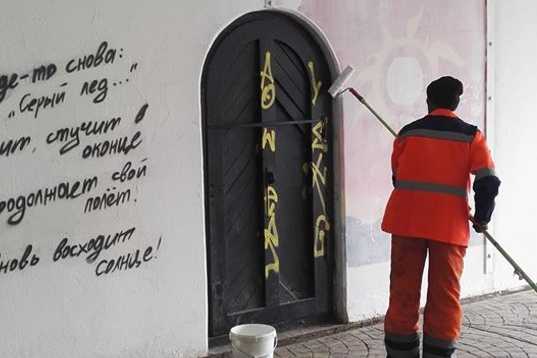 где-то снова:
"Серый лед..."
ит, стучит в
оконце
родолжает свой
полёт.
вновь восходит
солнце!